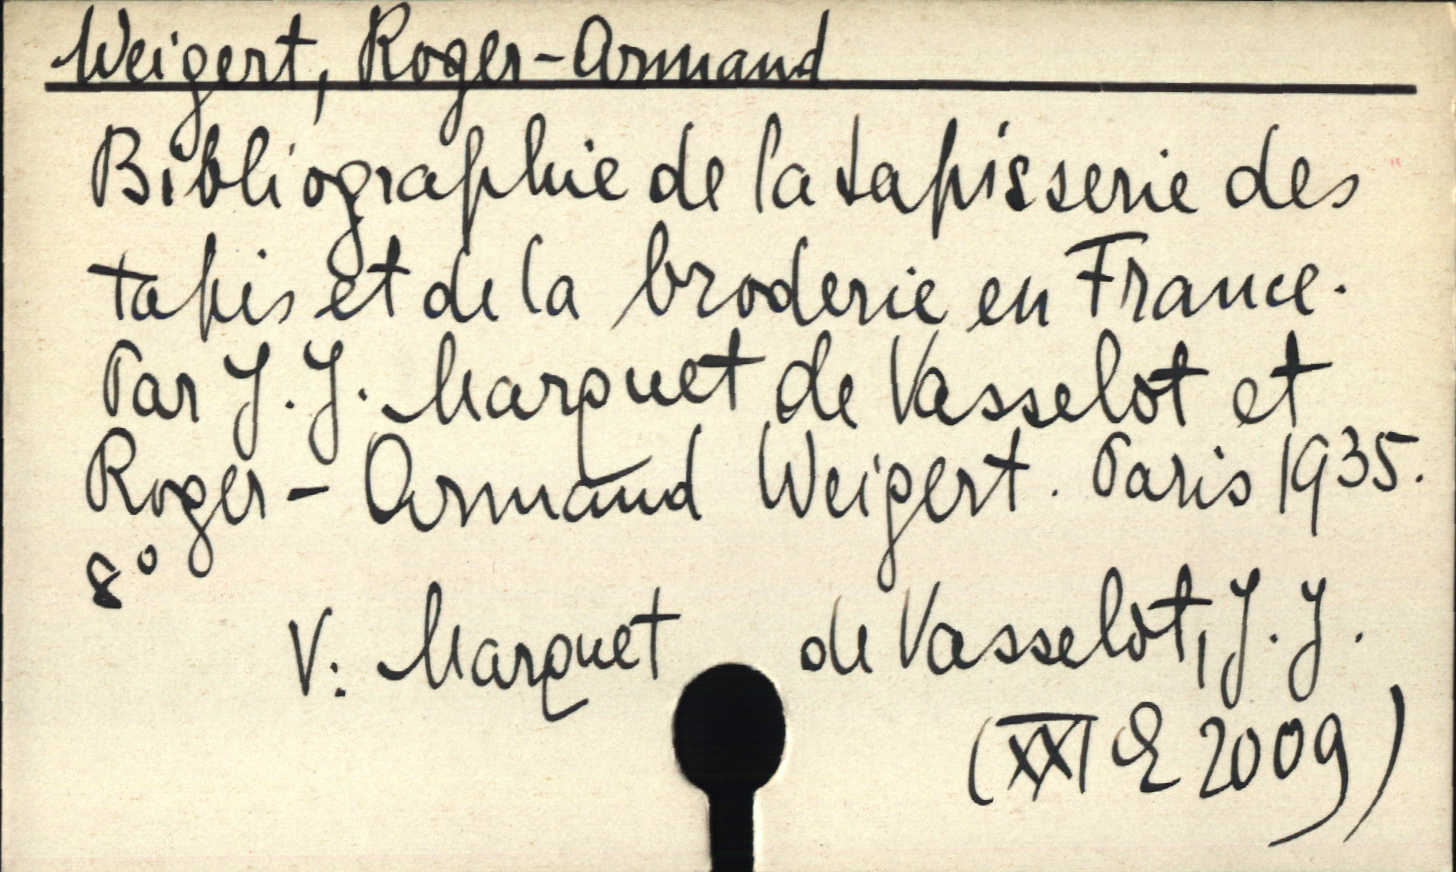 Weigert, Roger-Armand
Bibliographie de la tapisserie des
tapis et de la broderie en France.
Par J. J. Marquet de Vasselot et
Roger-Armand Weigert. Paris 1935.
8°
V: Marquet de Vasselot, J. J.
(XXI 2009)